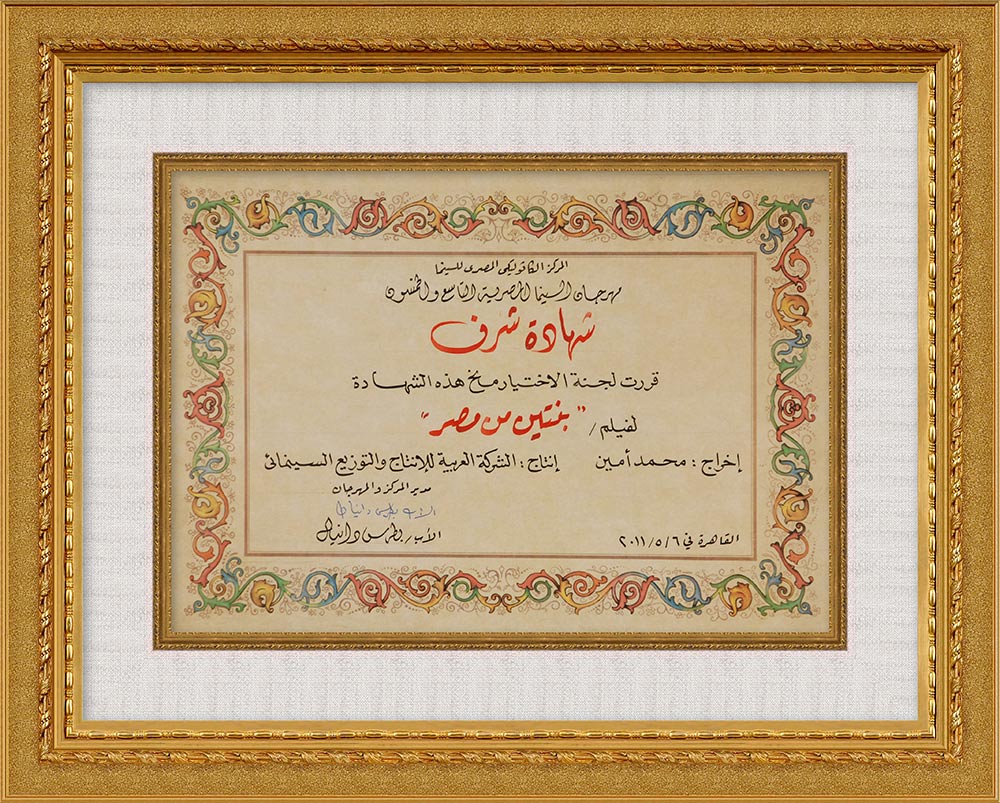 المركز الكاثوليكى المصرى للسينما
مهرجان السينما المصرية التاسع والخمسون
شهادة شرف
قررت لجنة الاختيار منح هذه الشهادة
لفيلم / "بنتين من مصر"
إخراج : محمد أمين إنتاج : الشركة العربية للإنتاج والتوزيع السينمائى
مدير المركز والمهرجان
الأب بطرس دانيال
القاهرة فى ٦ / ٥ / ٢٠١١ الأب / بطرس دانيال